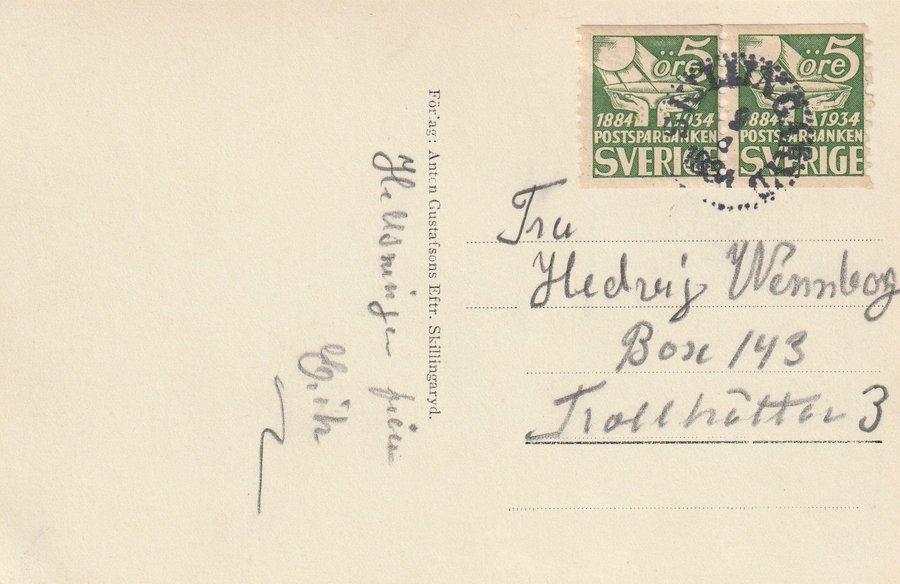 Förlag: Anton Gustafsons Eftr. Skillingaryd.
Helsningar från
Erik
5 öre
1884 1934
POSTSPARBANKEN
SVERIGE
5 öre
1884 1934
POSTSPARBANKEN
SVERIGE
Fru
Hedvig Wennborg
Box 143
Trollhättan 3